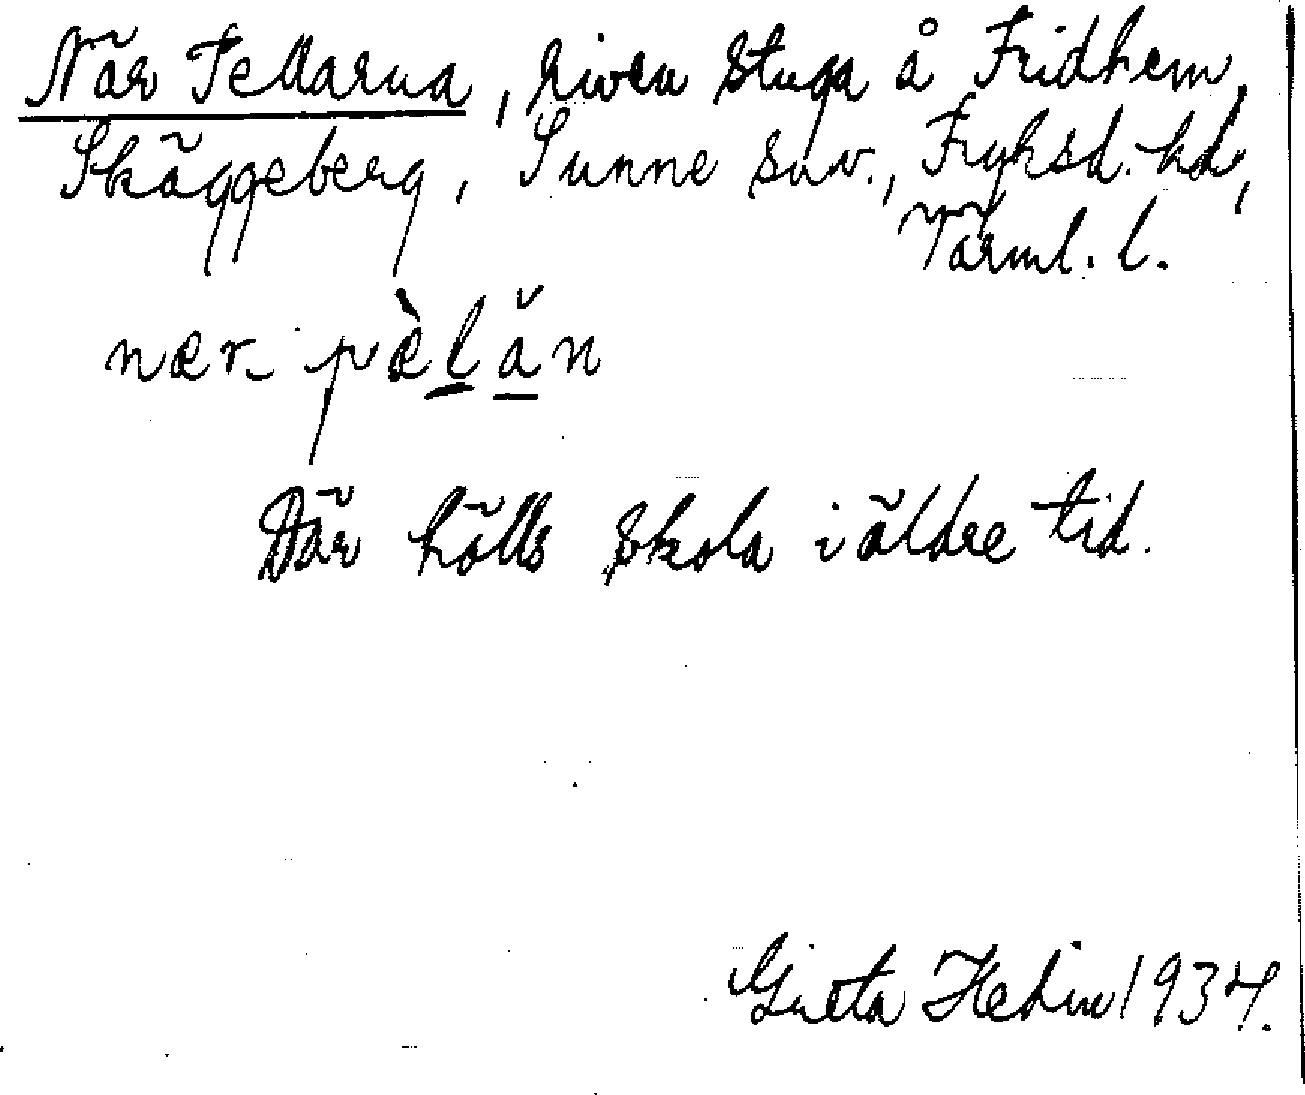 När Tellarna, riven stuga å Fridhem,
Skäggeberg, Sunne sn., Fryksd. hd,
Värml. l.
nær
Där hölls skola i äldre tid.
Greta Hedin 1934.